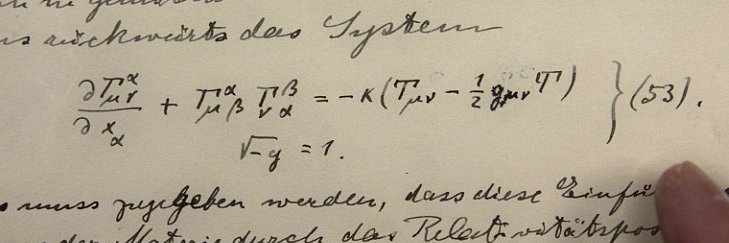 rückwärts das System
∂Γ^α_μν / ∂x_α + Γ^α_μβ Γ^β_να = -κ (T_μν - 1/2 g_μν T) } (53).
√-g = 1.
muss zugegeben werden, dass diese Einfü
der Materie durch das Relativitätspos